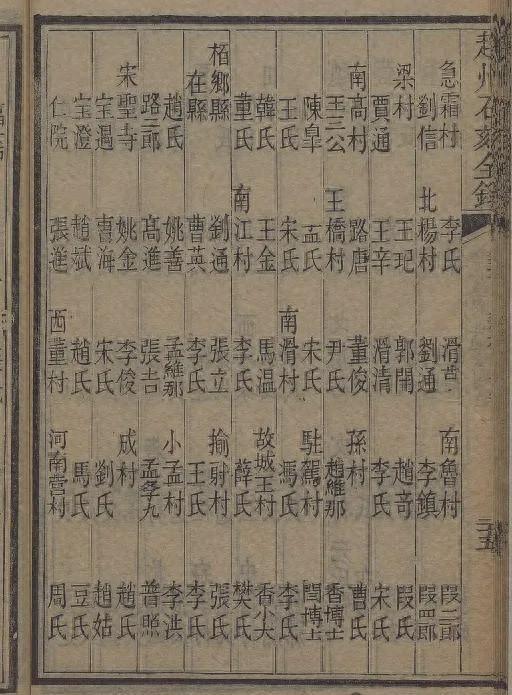 趙州石刻全錄
急霜村 李氏 滑 南魯村 段二郎
劉信 北楊村 劉通 李鎮 段四郎
梁村 王玘 郭開 趙奇 段氏
賈通 王辛 滑清 李氏 宋氏
南高村 路唐 董俊 孫村 曹氏
王三公 王橋村 尹氏 趙維那 香博士
陳皐 孟氏 宋氏 駐駕村 閆博士
王氏 宋氏 南滑村 馮氏 李氏
韓氏 王金 馬温 故城王村 香小大
董氏 南江村 李氏 薛氏 樊氏
栢鄉縣 劉通 張立 村 張氏
在縣 曹英 李氏 王氏 李氏
趙氏 姚善 孟維那 小孟村 李洪
路二郎 髙進 張吉 孟孝九 普照
宋聖寺 姚金 李俊 成村 趙氏
宝遇 曹海 宋氏 劉氏 趙姑
宝澄 趙斌 趙氏 馬氏 豆氏
仁院 張進 西董村 河南營村 周氏